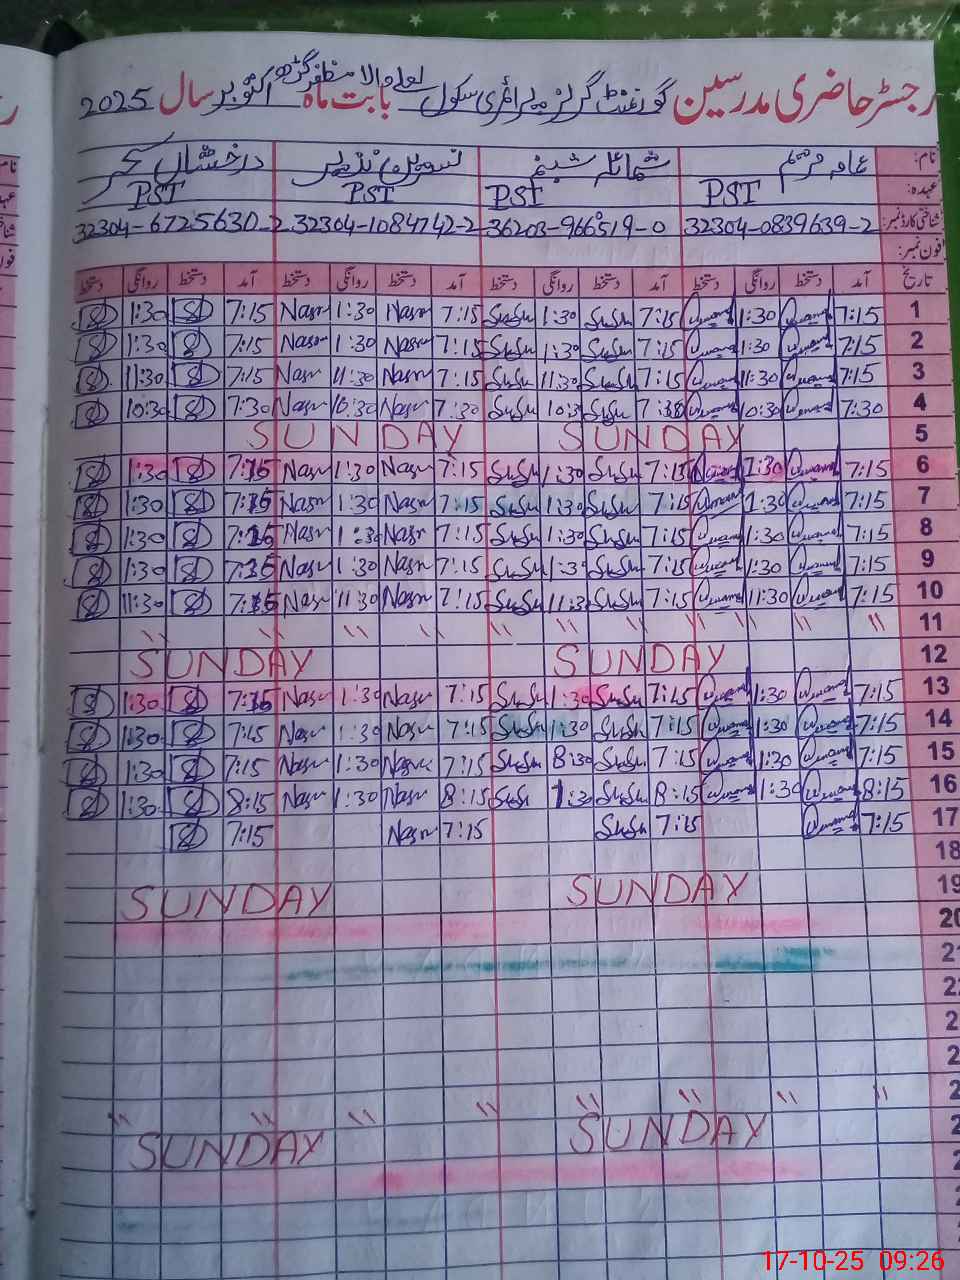 رجسٹر حاضری مدرسین گورنمنٹ گرلز پرائمری سکول لعلے والا مظفر گڑھ بابت ماہ اکتوبر سال 2025
نام: شمائلہ شبنم نسرین نذیر درخشاں سحر
عہدہ: PST PST PST PST
شناختی کارڈ نمبر: 32304-0839639-2 36203-9660519-0 32304-1084742-2 32304-6725630-2
فون نمبر:
تاریخ آمد دستخط روانگی دستخط آمد دستخط روانگی دستخط آمد دستخط روانگی دستخط آمد دستخط روانگی دستخط
1 7:15 1:30 7:15 SuSu 1:30 SuSu 7:15 Nasn 1:30 Nasn 7:15 1:30
2 7:15 1:30 7:15 SuSu 1:30 SuSu 7:15 Nasn 1:30 Nasn 7:15 1:30
3 7:15 11:30 7:15 SuSu 11:30 SuSu 7:15 Nasn 11:30 Nasn 7:15 11:30
4 7:30 10:30 7:30 SuSu 10:3 SuSu 7:30 Nasn 10:30 Nasn 7:30 10:30
5 SUNDAY SUNDAY
6 7:15 1:30 7:15 SuSu 1:30 SuSu 7:15 Nasn 1:30 Nasn 7:15 1:30
7 7:15 1:30 7:15 SuSu 1:30 SuSu 7:15 Nasn 1:30 Nasn 7:15 1:30
8 7:15 1:30 7:15 SuSu 1:30 SuSu 7:15 Nasn 1:30 Nasn 7:15 1:30
9 7:15 1:30 7:15 SuSu 1:3 SuSu 7:15 Nasn 1:30 Nasn 7:15 1:30
10 7:15 11:30 7:15 SuSu 11:3 SuSu 7:15 Nasn 11:30 Nasn 7:15 11:30
11 " " " " " " " " " " "
12 SUNDAY SUNDAY
13 7:15 1:30 7:15 SuSu 1:30 SuSu 7:15 Nasn 1:30 Nasn 7:15 1:30
14 7:15 1:30 7:15 SuSu 1:30 SuSu 7:15 Nasn 1:30 Nasn 7:15 1:30
15 7:15 1:30 7:15 SuSu 8:30 SuSu 7:15 Nasn 1:30 Nasn 7:15 1:30
16 8:15 1:30 8:15 SuSu 1:30 SuSu 8:15 Nasn 1:30 Nasn 8:15 1:30
17 7:15 7:15 SuSu 7:15 Nasn 7:15
18
19 SUNDAY SUNDAY
20
21
22
2
2
2 " " " " " " " "
2 SUNDAY SUNDAY
2
2
17-10-25 09:26